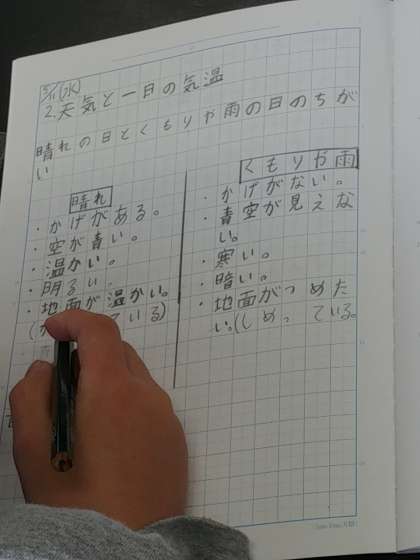 (水)
2.天気と一日の気温
晴れの日とくもりや雨の日のちが
い
晴れ
・かげがある。
・空が青い。
・温かい。
・明るい。
・地面が温かい。
ている)
くもりや雨
・かげがない。
・青空が見えな
い。
・寒い。
・暗い。
・地面がつめた
い。(しめっている。